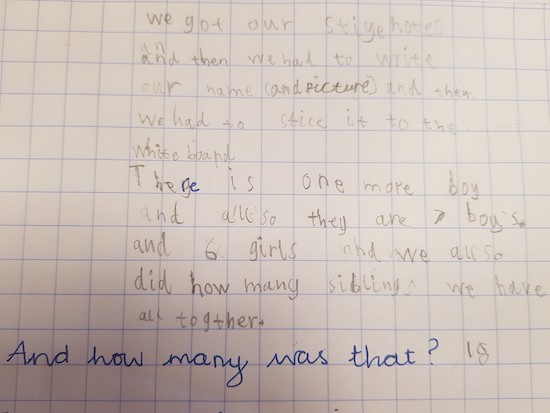 we got our stiyenotes
and then we had to write
our name (and picture) and then
we had to stice it to the
white board
There is one more boy
and allso they are 7 boy's.
and 6 girls and we allso
did how many siblings we have
all togther.
And how many was that? 18